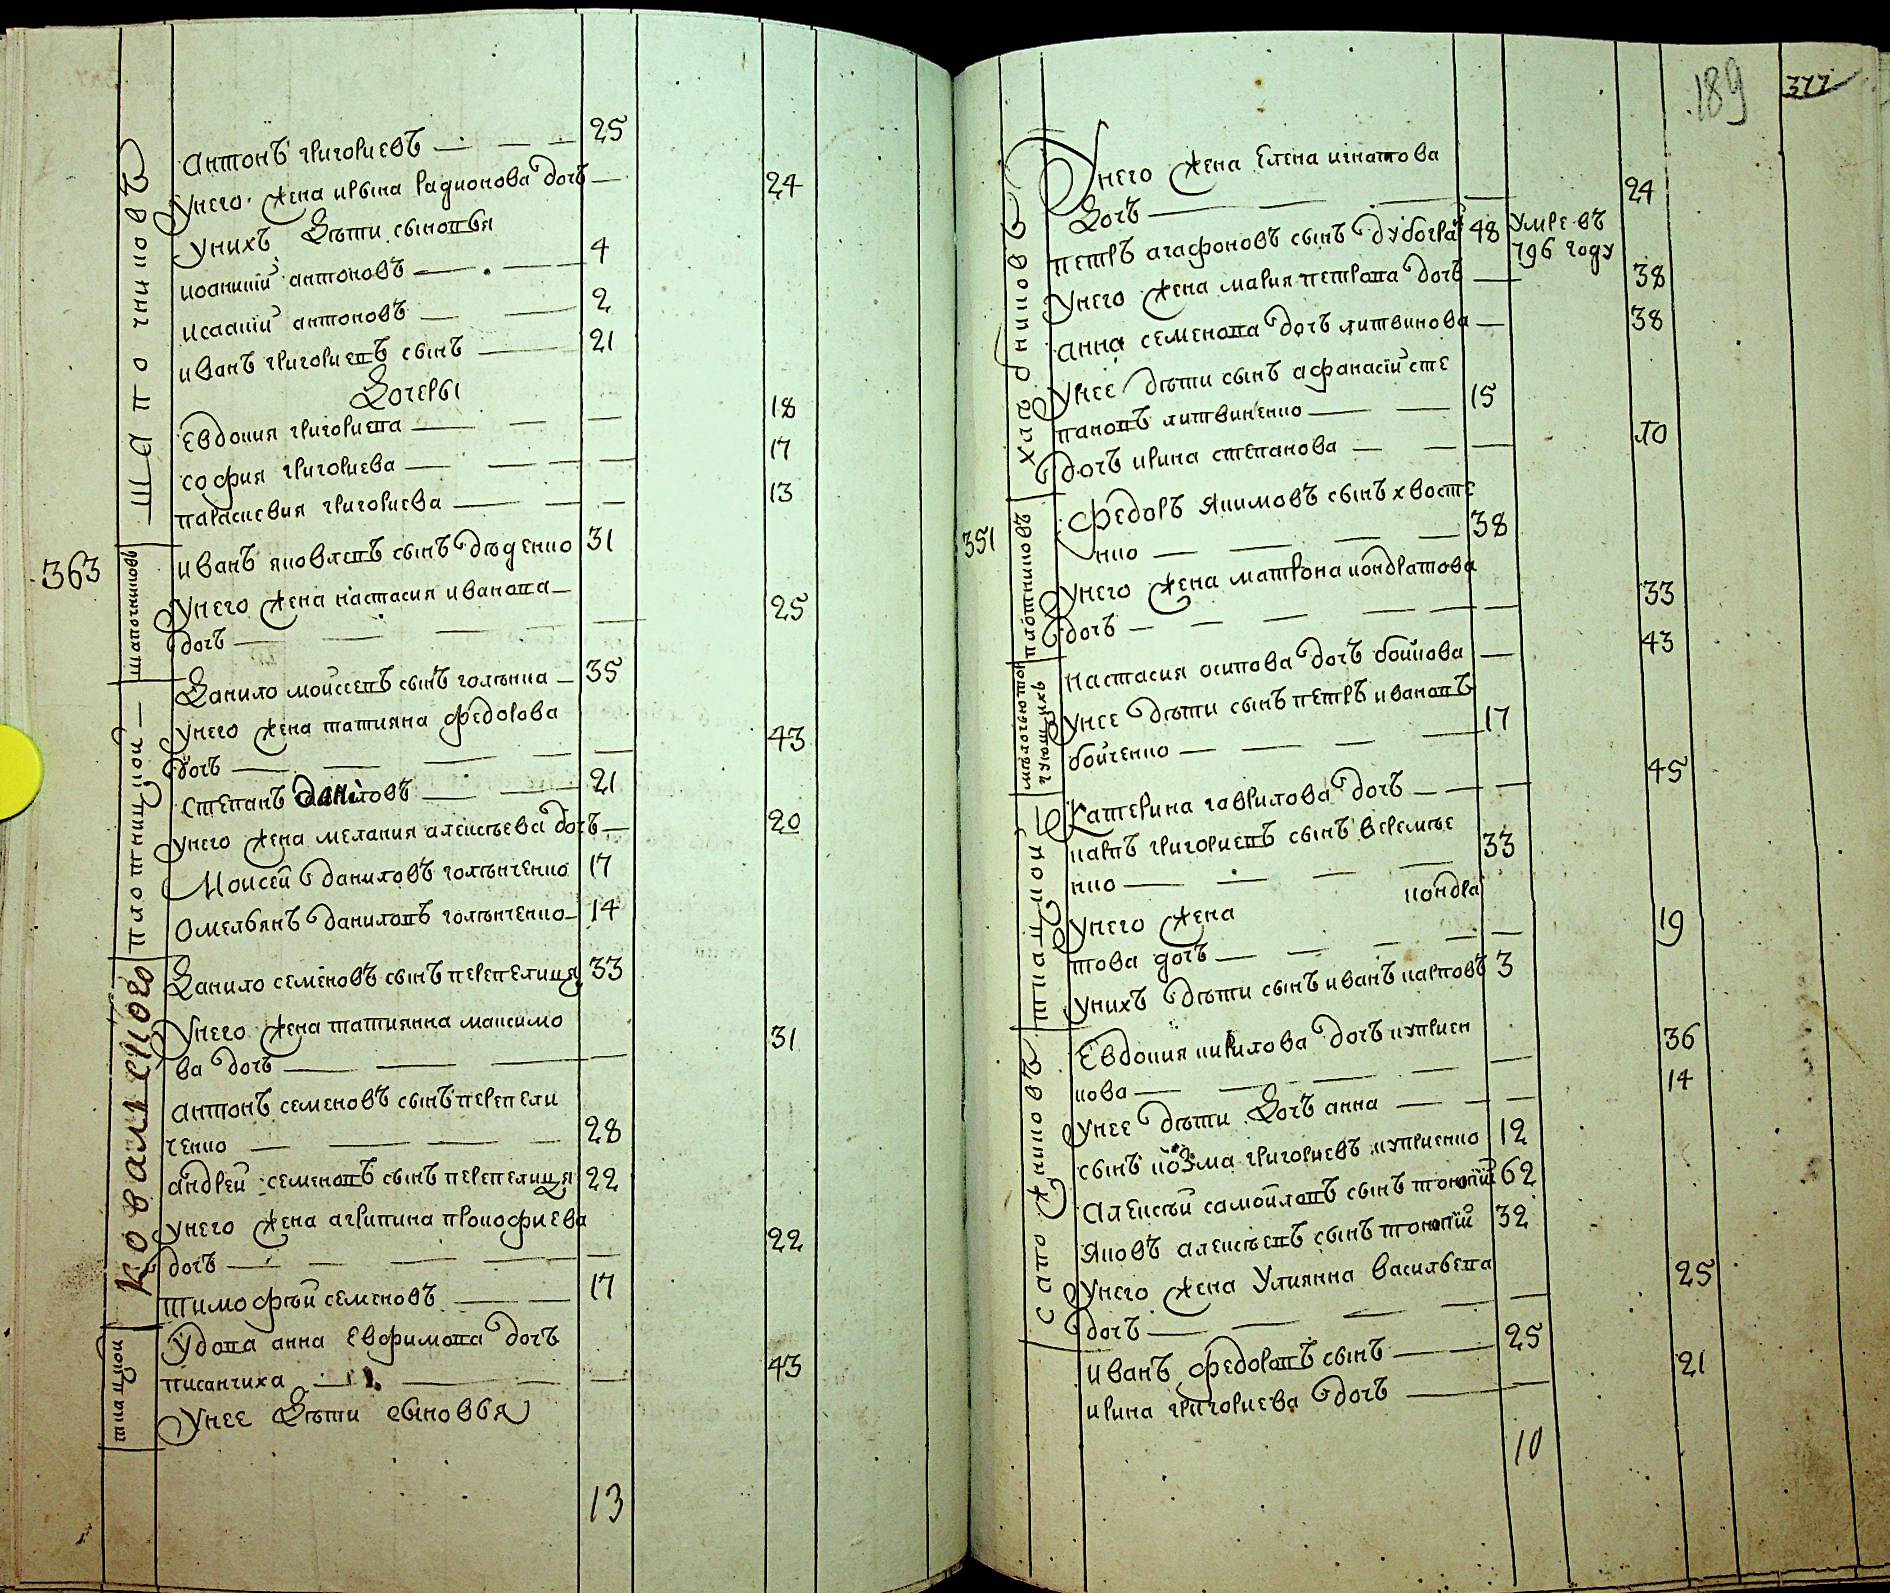 Шапочниковъ
Антонъ григориевъ — 25
Унего жена ирына радионова дочь — 24
Унихъ Дѣти сыновья
иоаникий антоновъ — 4
исаакий антоновъ — 2
иванъ григориевъ сынъ — 21
Дочеры
Евдокия григориева — 18
софия григориева — 17
параскевия григориева — 13
363
шапочниковъ
иванъ яковлевъ сынъ дѣденко 31
Унего жена настасия иванова —
дочь — 25
плотницкой
Данило моисеевъ сынъ голѣнка — 35
Унего жена татияна федорова
дочь — 43
степанъ данѣловъ — 21
унего жена мелания алексѣева дочь — 20
Моисей даниловъ голѣнченко 17
Омельянъ даниловъ голѣнченко — 14
Ковалского
Данило семеновъ сынъ перепелиця 33
Унего жена татиянна максимо
ва дочь — 31
антонъ семеновъ сынъ перепели
ченко — 28
андрей семеновъ сынъ перепелиця 22
унего жена агрипина прокофиева
дочь — 22
тимофѣй семеновъ — 17
ткацкой
Удова анна Евфимова дочь
писанчиха — 43
Унее Дѣти сыновья
13
189
377
Унего жена Елена игнатова
Дочь — 24
петръ агафоновъ сынъ 48 Умре въ
796 году
Унего жена мария петрова дочь — 38
анна семенова дочь литвинова — 38
Унее дѣти сынъ афанасий сте
пановъ литвиненко — 15
дочь ирина степанова — 10
351
плотниковъ
Федоръ Якимовъ сынъ хвосте
нко — 38
Унего жена матрона кондратова
дочь — 33
настасия осипова дочь бойкова — 43
Унее дѣти сынъ петръ ивановъ
бойченко — 17
Катерина гаврилова дочь — 45
ткацкой
карпъ григориевъ сынъ веремѣе
нко — 33
Унего жена кондра
това дочь — 19
Унихъ дѣти сынъ иванъ карповъ 3
сапожниковъ
Евдокия кирилова дочь куприен
кова — 36
Унее дѣти Дочь анна — 14
сынъ козма григориевъ куприенко 12
Алексѣй самойловъ сынъ 62
Яковъ алексѣевъ сынъ 32
Унего жена Улиянна васильева
дочь — 25
иванъ федоровъ сынъ — 25
ирина григориева дочь — 21
10